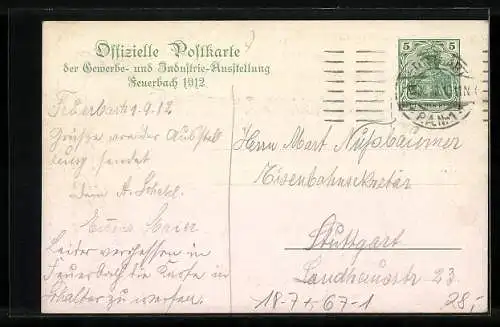 Offizielle Postkarte
der Gewerbe- und Industrie-Ausstellung
Feuerbach 1912
5 5
Feuerbach 1.9.12
Grüsse von der Ausstel
lung sendet
Dein A.
Leider vergessen in
Feuerbach die Karte in
Schalter zu werfen.
Herrn Mart Nußbaumer
Eisenbahnsekretär
Stuttgart
Landhausstr 23
18-7+67-1
28,-